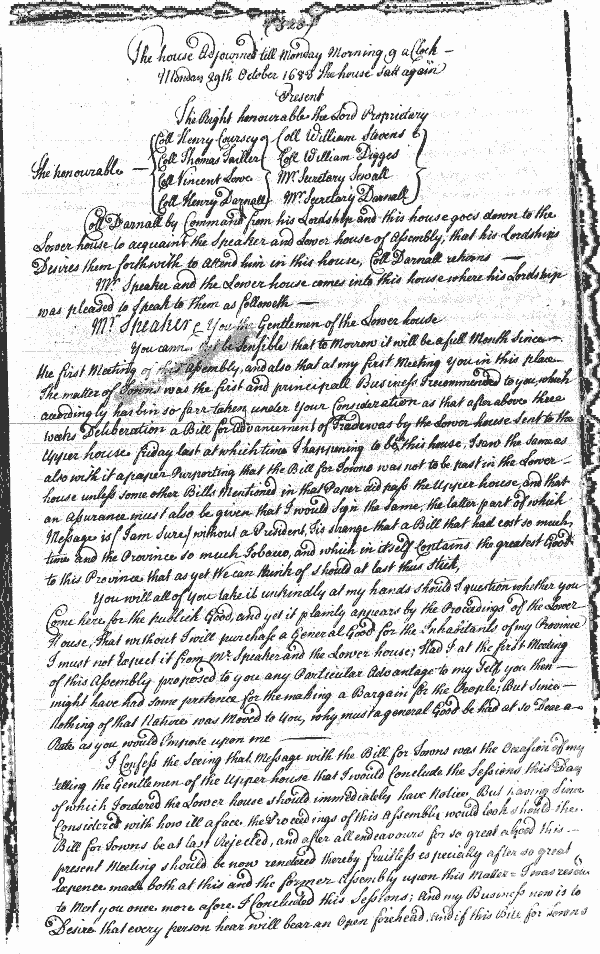 (328)
The house Adjourned till Monday Morning 9 a Clock —
Monday 29th October 1683 The house Satt again
Present
The Right honourable the Lord Proprietary
The honourable —
Coll Henry Coursey
Coll Thomas Tailler
Coll Vincent Lowe
Coll Henry Darnall
Coll William Stevens
Coll William Digges
Mr. Secretary Sewall
Mr. Secretary Darnall
Coll Darnall by Command from his Lordship and this house goes down to the
Lower house to acquaint the Speaker and Lower house of Assembly, that his Lordship
Desires them forthwith to Attend him in this house, Coll Darnall returns —
Mr. Speaker and the Lower house comes into this house where his Lordship
was pleased to speak to them as followeth —
Mr. Speaker & You the Gentlemen of the Lower house
You cannot but be Sensible that to Morrow it will be a full Month Since —
the first Meeting of this Assembly, and also that at my first Meeting You in this place
The matter of Towns was the first and principall Business I recommended to you, which
accordingly has bin so farr taken under Your Consideration as that after above three
weeks Deliberation a Bill for Advancement of Trade was by the Lower house sent to the
Upper house friday last at which time I happening to be in this house, I saw the same as
also with it a paper Purporting that the Bill for Towns was not to be past in the Lower —
house unless some other Bills Mentioned in that Paper did pass the Upper house, and that
an Assurance must also be given that I would Sign the Same, the latter part of which
Message is (I am Sure) without a President, Tis strange that a Bill that had cost so much
time and the Province so much Tobacco, and which in itself Contains the greatest Good
to this Province that as yet We can think of should at last thus Stick,
You will all of you take it unkindly at my hands should I question whether you
Come here for the publick Good, and yet it plainly appears by the Proceedings of the Lower
House, That without I will purchase a General Good for the Inhabitants of my Province
I must not Expect it from Mr. Speaker and the Lower house; Had I at the first Meeting
of this Assembly proposed to you any Particular Advantage to my Self you then —
might have had some pretence for the making a Bargain for the People; But Since —
Nothing of that Nature was Moved to You, why must a general Good be had at so Dear a —
Rate as you would Impose upon me —
I Confess the Seeing that Message with the Bill for Towns was the Occasion of my
telling the Gentlemen of the Upper house that I would Conclude the Sessions this Day
of which I ordered the Lower house should immediately have Notice, But having Since
Considered with how ill a face the Proceedings of this Assembly would look should the
Bill for Towns be at last Rejected, and after all endeavours for so great a good this —
present Meeting should be now rendered thereby fruitless especially after so great
Expence made both at this and the former Assembly upon this Matter I was
to Meet you once more afore I Concluded this Sessions; And my Business now is to
Desire that every person hear will bear an Open forehead. And if this Bill for Towns